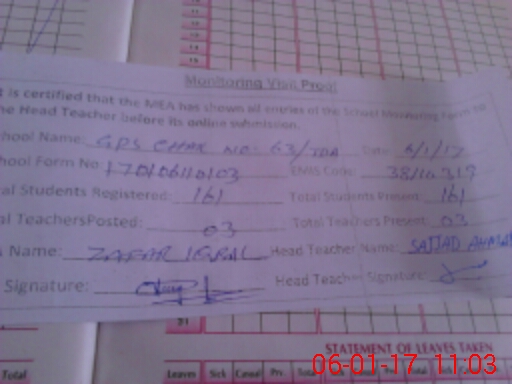 Monitoring Visit Proof
is certified that the MEA has shown all entries of the School Monitoring Form to
he Head Teacher before its online submission.
hool Name: GPS CHAK NO: 63/TDA Date: 6/1/17
hool Form No: 170106110103 EMIS Code: 38110319
al Students Registered: 161 Total Students Present: 161
al TeachersPosted: 03 Total Teachers Present: 03
s Name: ZAFAR IQBAL Head Teacher Name: SAJJAD AHMAD
Signature: Head Teacher Signature:
31
STATEMENT OF LEAVES TAKEN
Total Leaves Sick Casual Prv. Total Total
06-01-17 11:03